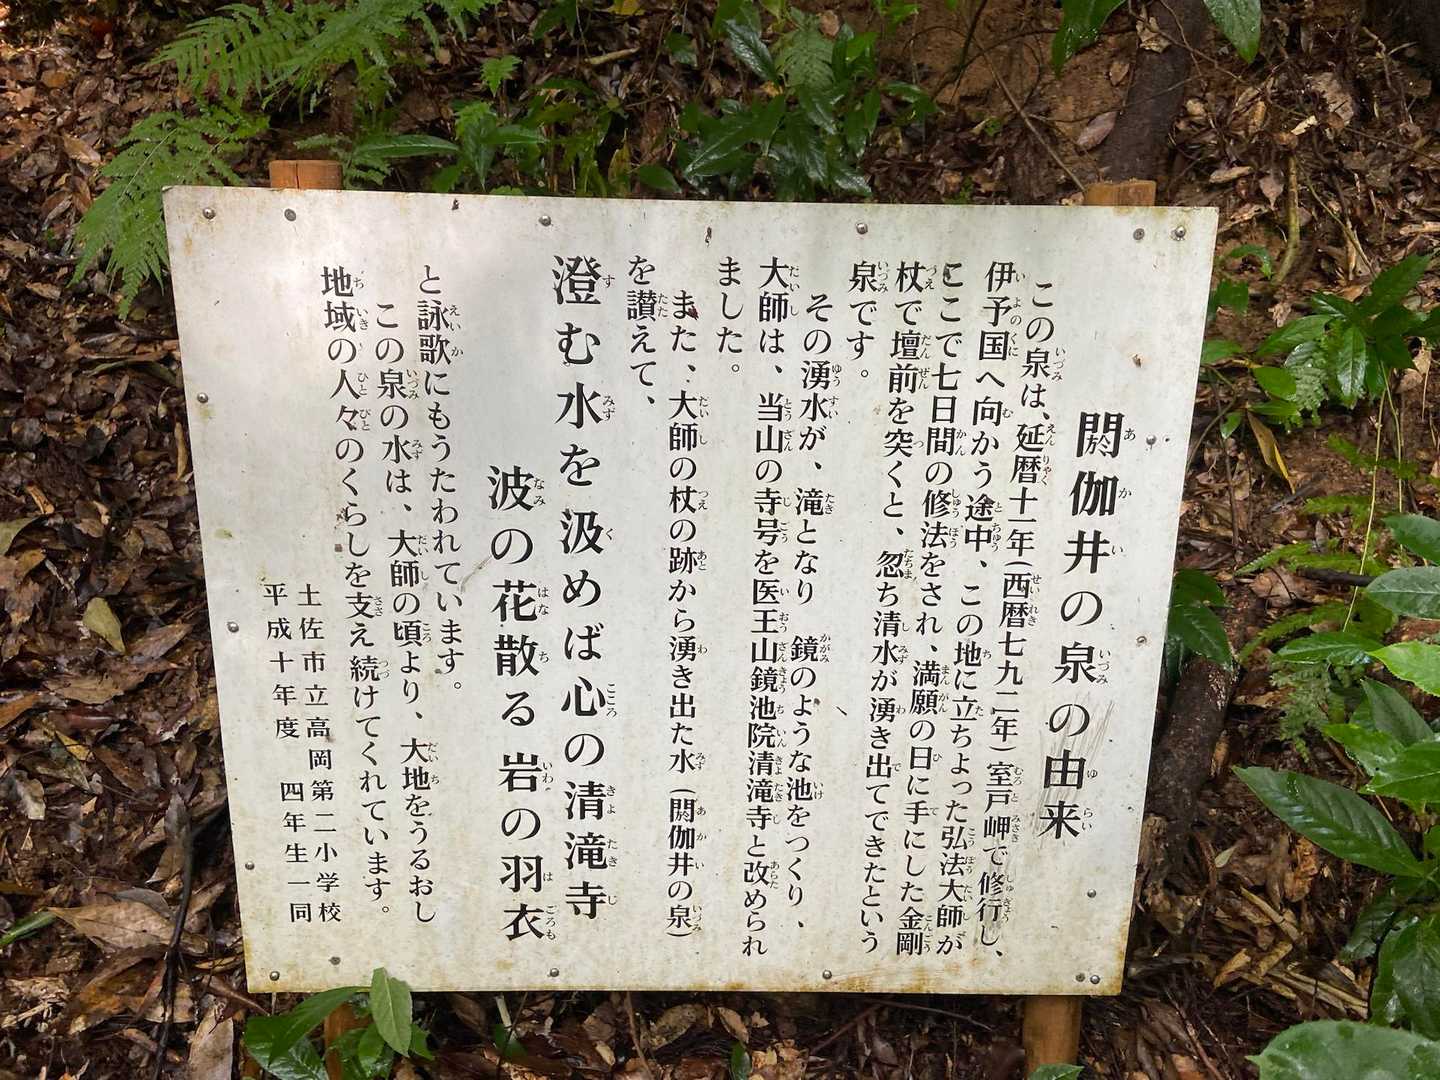 閼伽井の泉の由来
この泉は、延暦十一年(西暦七九二年)室戸岬で修行し、
伊予国へ向かう途中、この地に立ちよった弘法大師が
ここで七日間の修法をされ、満願の日に手にした金剛
杖で壇前を突くと、忽ち清水が湧き出てできたという
泉です。
その湧水が、滝となり 鏡のような池をつくり、
大師は、当山の寺号を医王山鏡池院清滝寺と改められ
ました。
また、大師の杖の跡から湧き出た水(閼伽井の泉)
を讃えて、
澄む水を汲めば心の清滝寺
波の花散る岩の羽衣
と詠歌にもうたわれています。
この泉の水は、大師の頃より、大地をうるおし
地域の人々のくらしを支え続けてくれています。
土佐市立高岡第二小学校
平成十年度 四年生一同